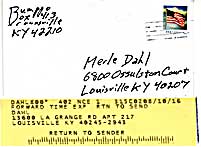 Box 7413
Louisville
KY 42210
Merle Dahl
6800 Ossulston Court
Louisville KY 40207
DAHL 402 NCE 1
FORWARD TIME EXP RTN TO SEND
DAHL
13600 LA GRANGE RD APT 217
LOUISVILLE KY 40245-2943
RETURN TO SENDER